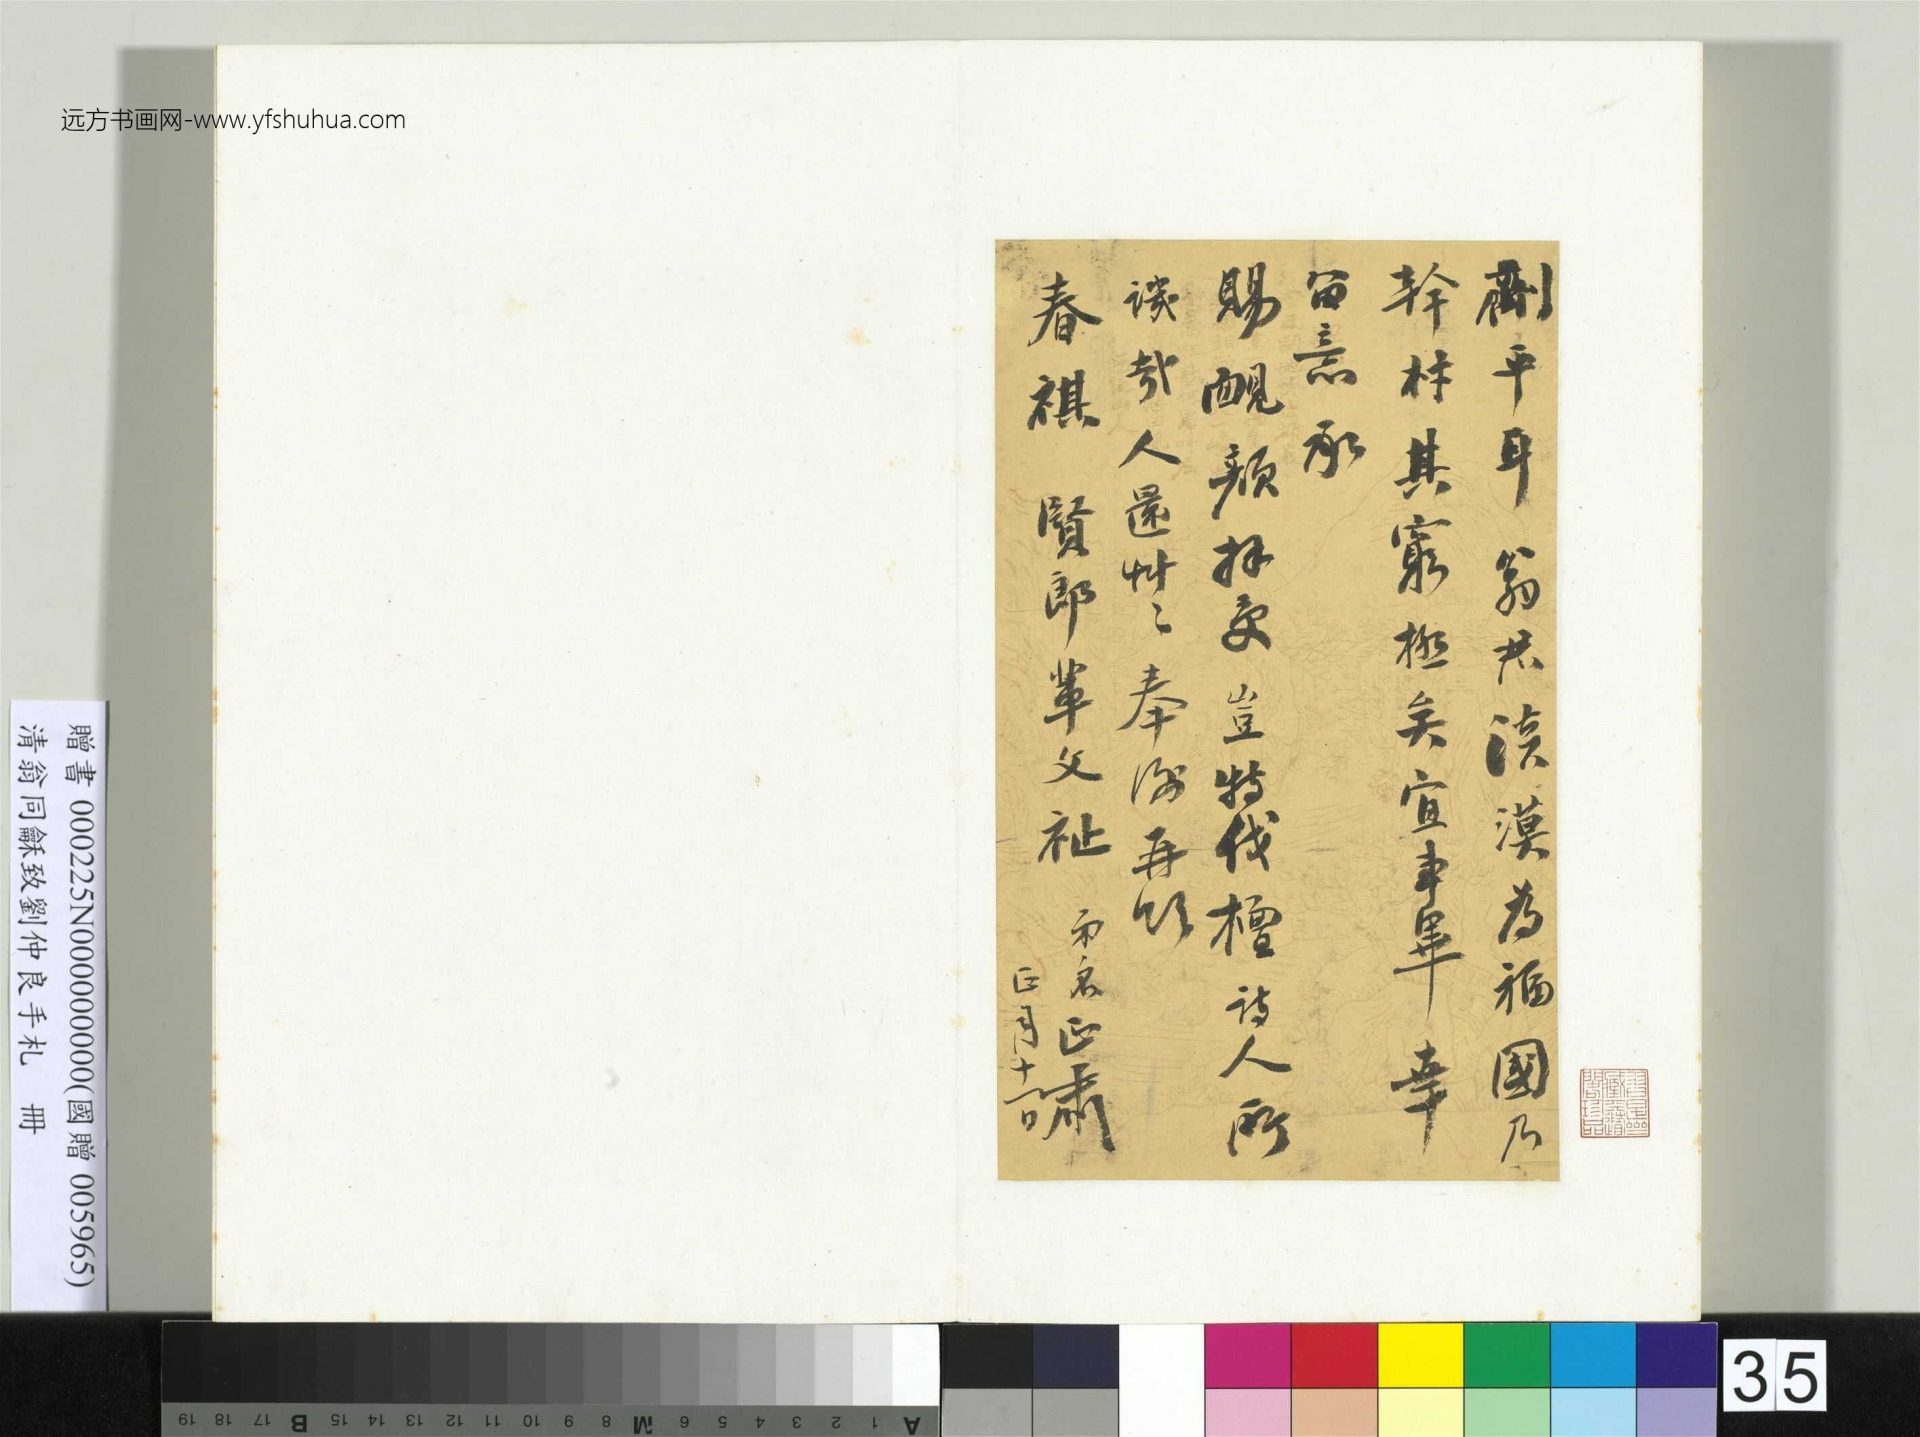 远方书画网-www.yfshuhua.com
劘平耳 翁其淡漠為福國乃
幹材其窮極矣宜車畢 幸
留意承
賜靦顏拜受豈特伐檀詩人所
譏哉人還艸艸奉謝再頌
春祺 賢郎輩文祉
兩宥正肅
正月十一日
贈書 000225N000000000(國贈 005965)
清翁同龢致劉仲良手札 冊
A 1 2 3 4 5 6 M 8 9 10 11 12 13 14 15 B 17 18 19
35